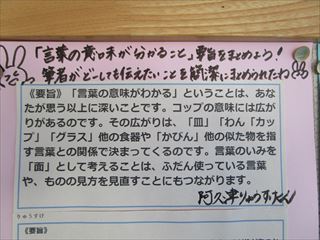 「言葉の意味が分かること」要旨をまとめよう!
筆者がどーしても伝えたいことを簡潔にまとめられたね
《要旨》「言葉の意味がわかる」ということは、あな
たが思う以上に深いことです。コップの意味には広が
りがあるのです。その広がりは、「皿」「わん「カッ
プ」「グラス」他の食器や「かびん」他の似た物を指
す言葉との関係で決まってくるのです。言葉のいみを
「面」として考えることは、ふだん使っている言葉
や、ものの見方を見直すことにもつながります。
りゅうすけ
《要旨》